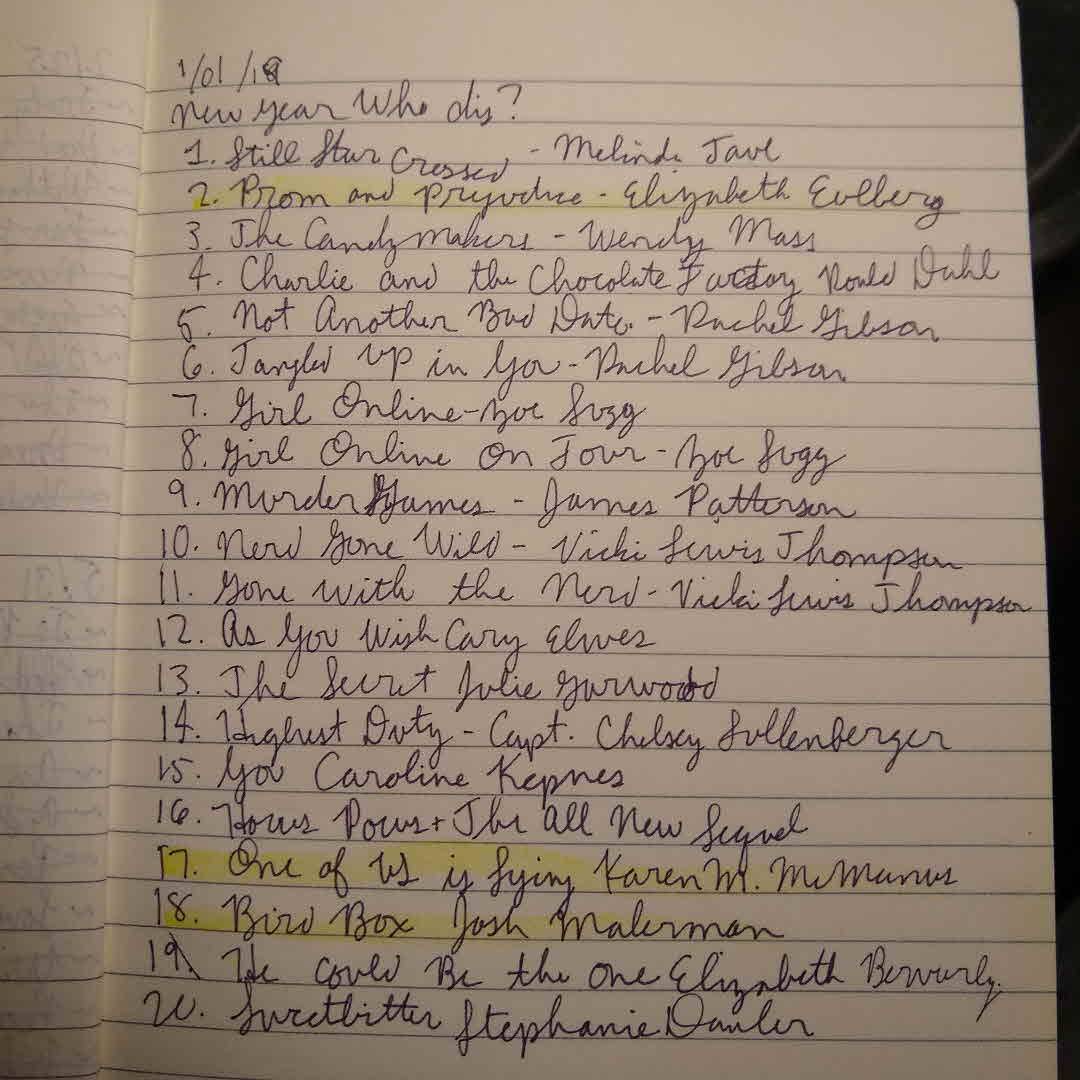 1/01/19
New year Who dis?
1. Still Star Crossed - Melinda Taub
2. Prom and Prejudice - Elizabeth Eulberg
3. The Candymakers - Wendy Mass
4. Charlie and the Chocolate Factory Roald Dahl
5. Not Another Bad Date - Rachel Gibson
6. Tangled Up in You - Rachel Gibson
7. Girl Online - Zoe Sugg
8. Girl Online On Tour - Zoe Sugg
9. Murder Games - James Patterson
10. Nerd Gone Wild - Vicki Lewis Thompson
11. Gone With the Nerd - Vicki Lewis Thompson
12. As You Wish Cary Elwes
13. The Secret Julie Garwood
14. Highest Duty - Capt. Chelsey Sullenberger
15. You Caroline Kepnes
16. Hocus Pocus + The All New Sequel
17. One of Us is Lying Karen M. McManus
18. Bird Box Josh Malerman
19. He Could Be the One Elizabeth
20. Sweetbitter Stephanie Danler